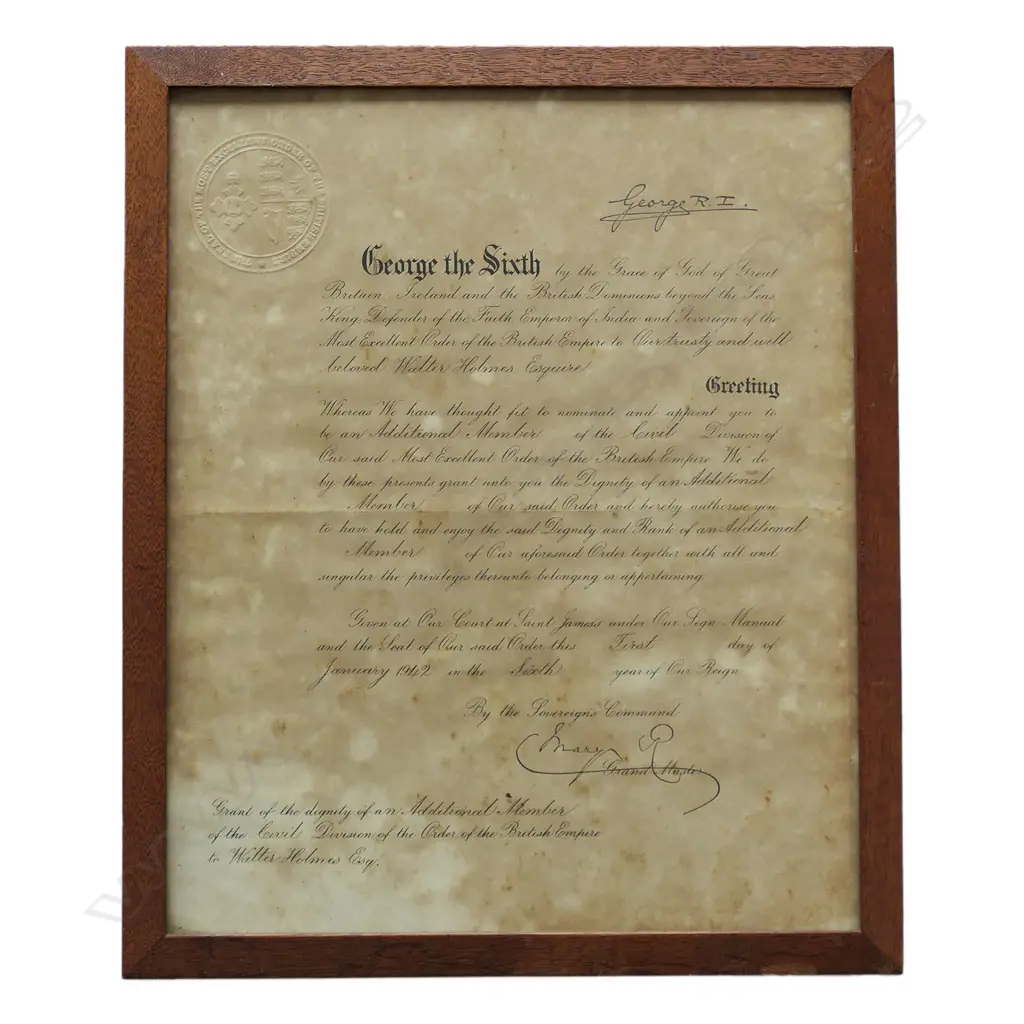 THE SEAL OF THE MOST EXCELLENT ORDER OF THE BRITISH EMPIRE
George R.I.
George the Sixth by the Grace of God of Great
Britain Ireland and the British Dominions beyond the Seas
King Defender of the Faith Emperor of India and Sovereign of the
Most Excellent Order of the British Empire to Our trusty and well
beloved Walter Holmes Esquire
Greeting
Whereas We have thought fit to nominate and appoint you to
be an Additional Member of the Civil Division of
Our said Most Excellent Order of the British Empire We do
by these presents grant unto you the Dignity of an Additional
Member of Our said Order and hereby authorise you
to have hold and enjoy the said Dignity and Rank of an Additional
Member of Our aforesaid Order together with all and
singular the privileges thereunto belonging or appertaining
Given at Our Court at Saint James's under Our Sign Manual
and the Seal of Our said Order this First day of
January 1942 in the Sixth year of Our Reign
By the Sovereign's Command
Mary R
Grand Master
Grant of the dignity of an Additional Member
of the Civil Division of the Order of the British Empire
to Walter Holmes Esq.